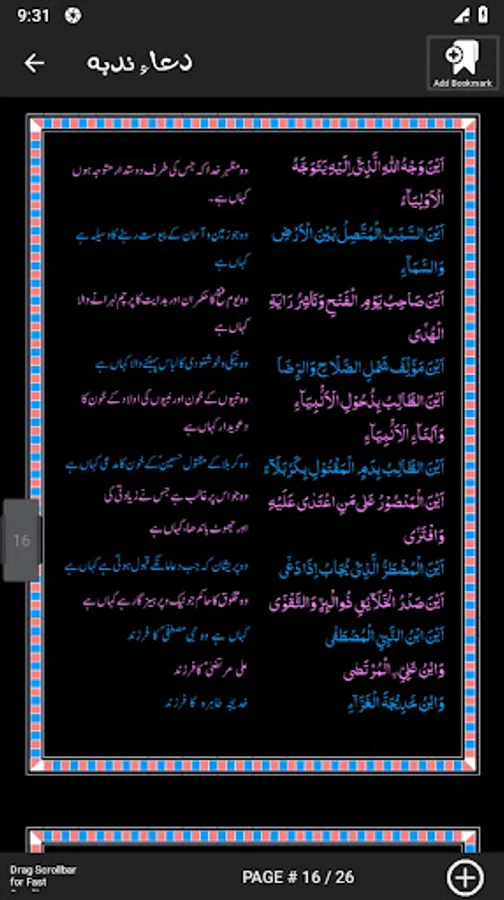 9:31
دعاءِ ندبہ
Add Bookmark
اَيْنَ وَجْهُ اللهِ الَّذِيْ اِلَيْهِ يَتَوَجَّهُ
الْاَوْلِيَاءُ
وہ مظہر خدا کہ جس کی طرف دوستدار متوجہ ہوں
کہاں ہے۔
اَيْنَ السَّبَبُ الْمُتَّصِلُ بَيْنَ الْاَرْضِ
وَالسَّمَآءِ
وہ جو زمین و آسمان کے پیوست رہنے کا وسیلہ ہے
کہاں ہے
اَيْنَ صَاحِبُ يَوْمِ الْفَتْحِ وَنَاشِرُ رَايَةِ
الْهُدٰى
وہ یوم فتح کا حکمران اور ہدایت کا پرچم لہرانے والا
کہاں ہے
اَيْنَ مُؤَلِّفُ شَمْلِ الصَّلَاحِ وَالرِّضَا
وہ نیکی و خوشنودی کا لباس پہننے والا کہاں ہے
اَيْنَ الطَّالِبُ بِذُحُوْلِ الْاَنْۢبِيَآءِ
وَاَبْنَآءِ الْاَنْۢبِيَآءِ
وہ نبیوں کے خون اور نبیوں کی اولاد کے خون کا
دعویدار کہاں ہے
اَيْنَ الطَّالِبُ بِدَمِ الْمَقْتُوْلِ بِكَرْبَلَآءَ
وہ کربلا کے مقتول حسینؑ کے خون کا مدعی کہاں ہے
اَيْنَ الْمَنْصُوْرُ عَلٰى مَنِ اعْتَدٰى عَلَيْهِ
وَافْتَرٰى
وہ جو اس پر غالب ہے جس نے زیادتی کی
اور جھوٹ باندھا، کہاں ہے
اَيْنَ الْمُضْطَرُّ الَّذِيْ يُجَابُ اِذَا دَعٰى
وہ پریشان کہ جب دعا مانگے قبول ہوتی ہے کہاں ہے
اَيْنَ صَدْرُ الْخَلَآئِقِ ذُوالْبِرِّ وَالتَّقْوٰى
وہ مخلوق کا حاکم جو نیک و پرہیزگار ہے کہاں ہے
اَيْنَ ابْنُ النَّبِيِّ الْمُصْطَفٰى
کہاں ہے وہ نبی مصطفیٰؐ کا فرزند
وَابْنُ عَلِيٍّ الْمُرْتَضٰى
علی مرتضیٰؑ کا فرزند
وَابْنُ خَدِيْجَةَ الْغَرَّآءِ
خدیجہ طاہرہ کا فرزند
16
Drag Scrollbar
for Fast
PAGE # 16 / 26